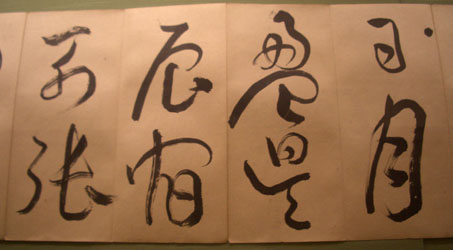 日月
盈昃
辰宿
列張